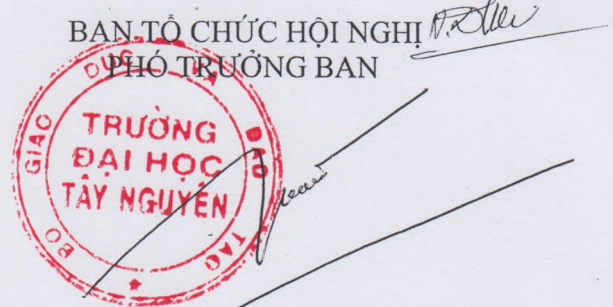 BAN TỔ CHỨC HỘI NGHỊ
PHÓ TRƯỞNG BAN
BỘ GIÁO DỤC VÀ ĐÀO TẠO
TRƯỜNG
ĐẠI HỌC
TÂY NGUYÊN